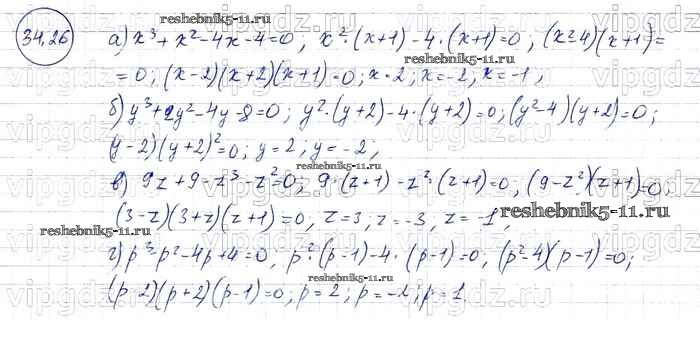 reshebnik5-11.ru
34.26 а) x³ + x² - 4x - 4 = 0, x²·(x+1) - 4·(x+1) = 0, (x²-4)(x+1) =
reshebnik5-11.ru
= 0; (x-2)(x+2)(x+1) = 0; x=2; x=-2, x=-1,
б) y³ + 2y² - 4y - 8 = 0; y²·(y+2) - 4·(y+2) = 0; (y²-4)(y+2) = 0;
(y-2)(y+2)² = 0; y = 2; y = -2;
reshebnik5-11.ru
в) 9z + 9 - z³ - z² = 0, 9·(z+1) - z²·(z+1) = 0, (9-z²)(z+1) = 0,
(3-z)(3+z)(z+1) = 0, z=3; z=-3, z=-1,
reshebnik5-11.ru
reshebnik5-11.ru
г) p³ - p² - 4p + 4 = 0, p²·(p-1) - 4·(p-1) = 0, (p²-4)(p-1) = 0;
reshebnik5-11.ru
(p-2)(p+2)(p-1) = 0; p = 2; p = -2; p = 1
vipgdz.ru vipgdz.ru vipgdz.ru